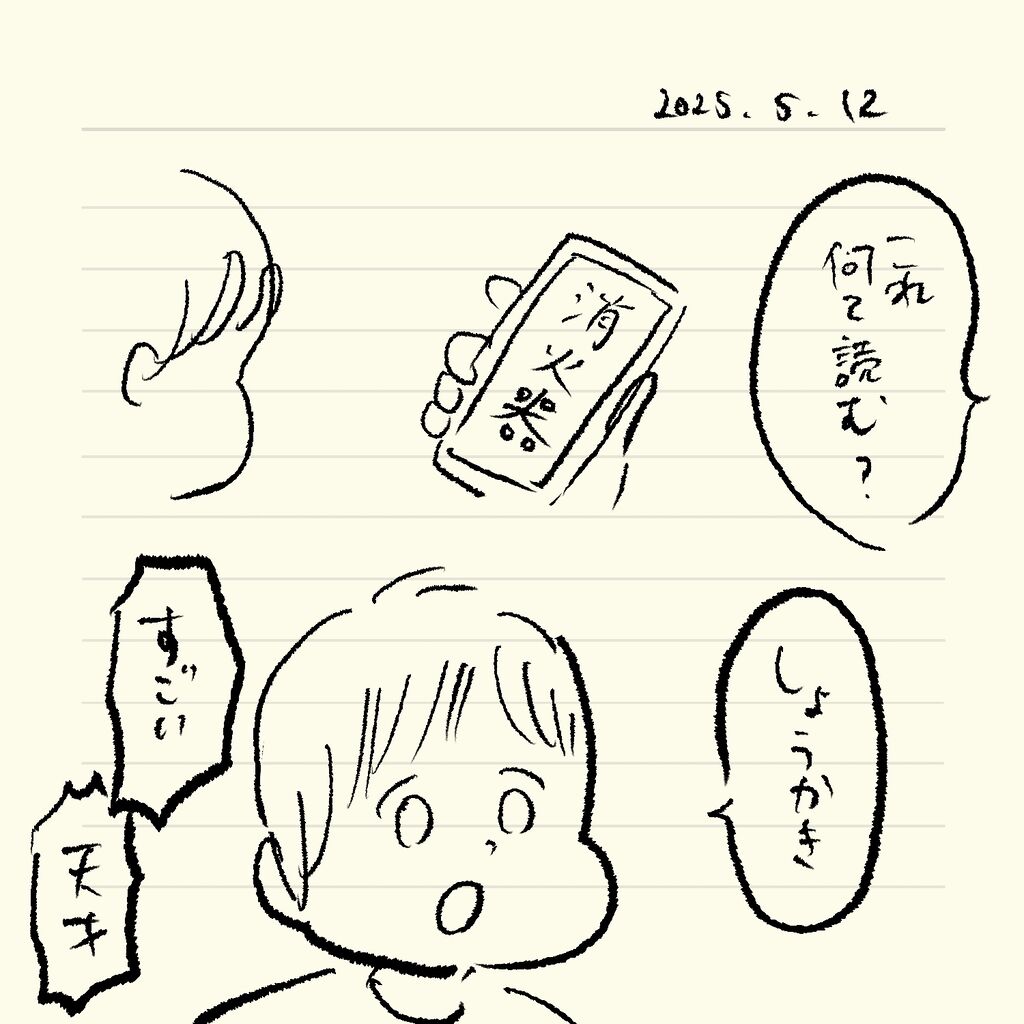 2025. 5. 12
これ
何て読む?
消火器
しょうかき
すごい
天才